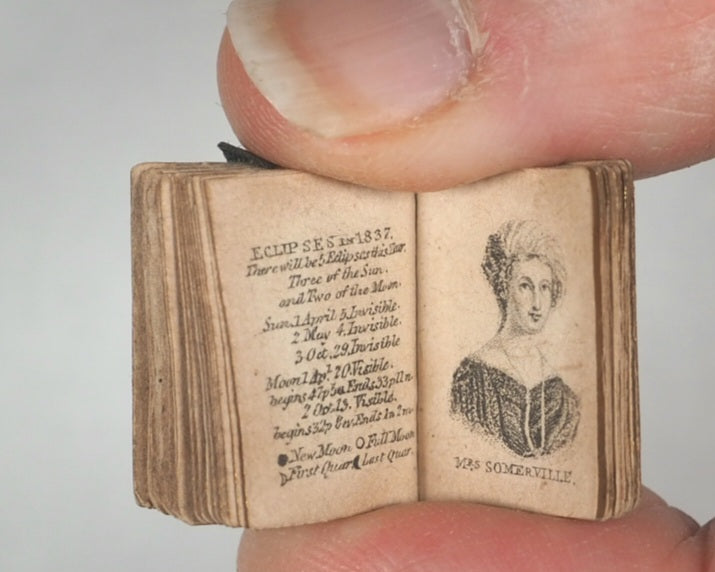 ECLIPSES in 1837.
There will be 5 Eclipses this Year.
Three of the Sun.
and Two of the Moon.
Sun. 1 April 5. Invisible.
2 May 4. Invisible.
3 Oct. 29. Invisible
Moon 1 Apl. 20. Visible.
begins 47p Ends 33p 11
2 Oct. 13. Visible.
begins 32p 8 Ends 1n 2m
New Moon Full Moon
First Quar. Last Quar.
MRS SOMERVILLE.